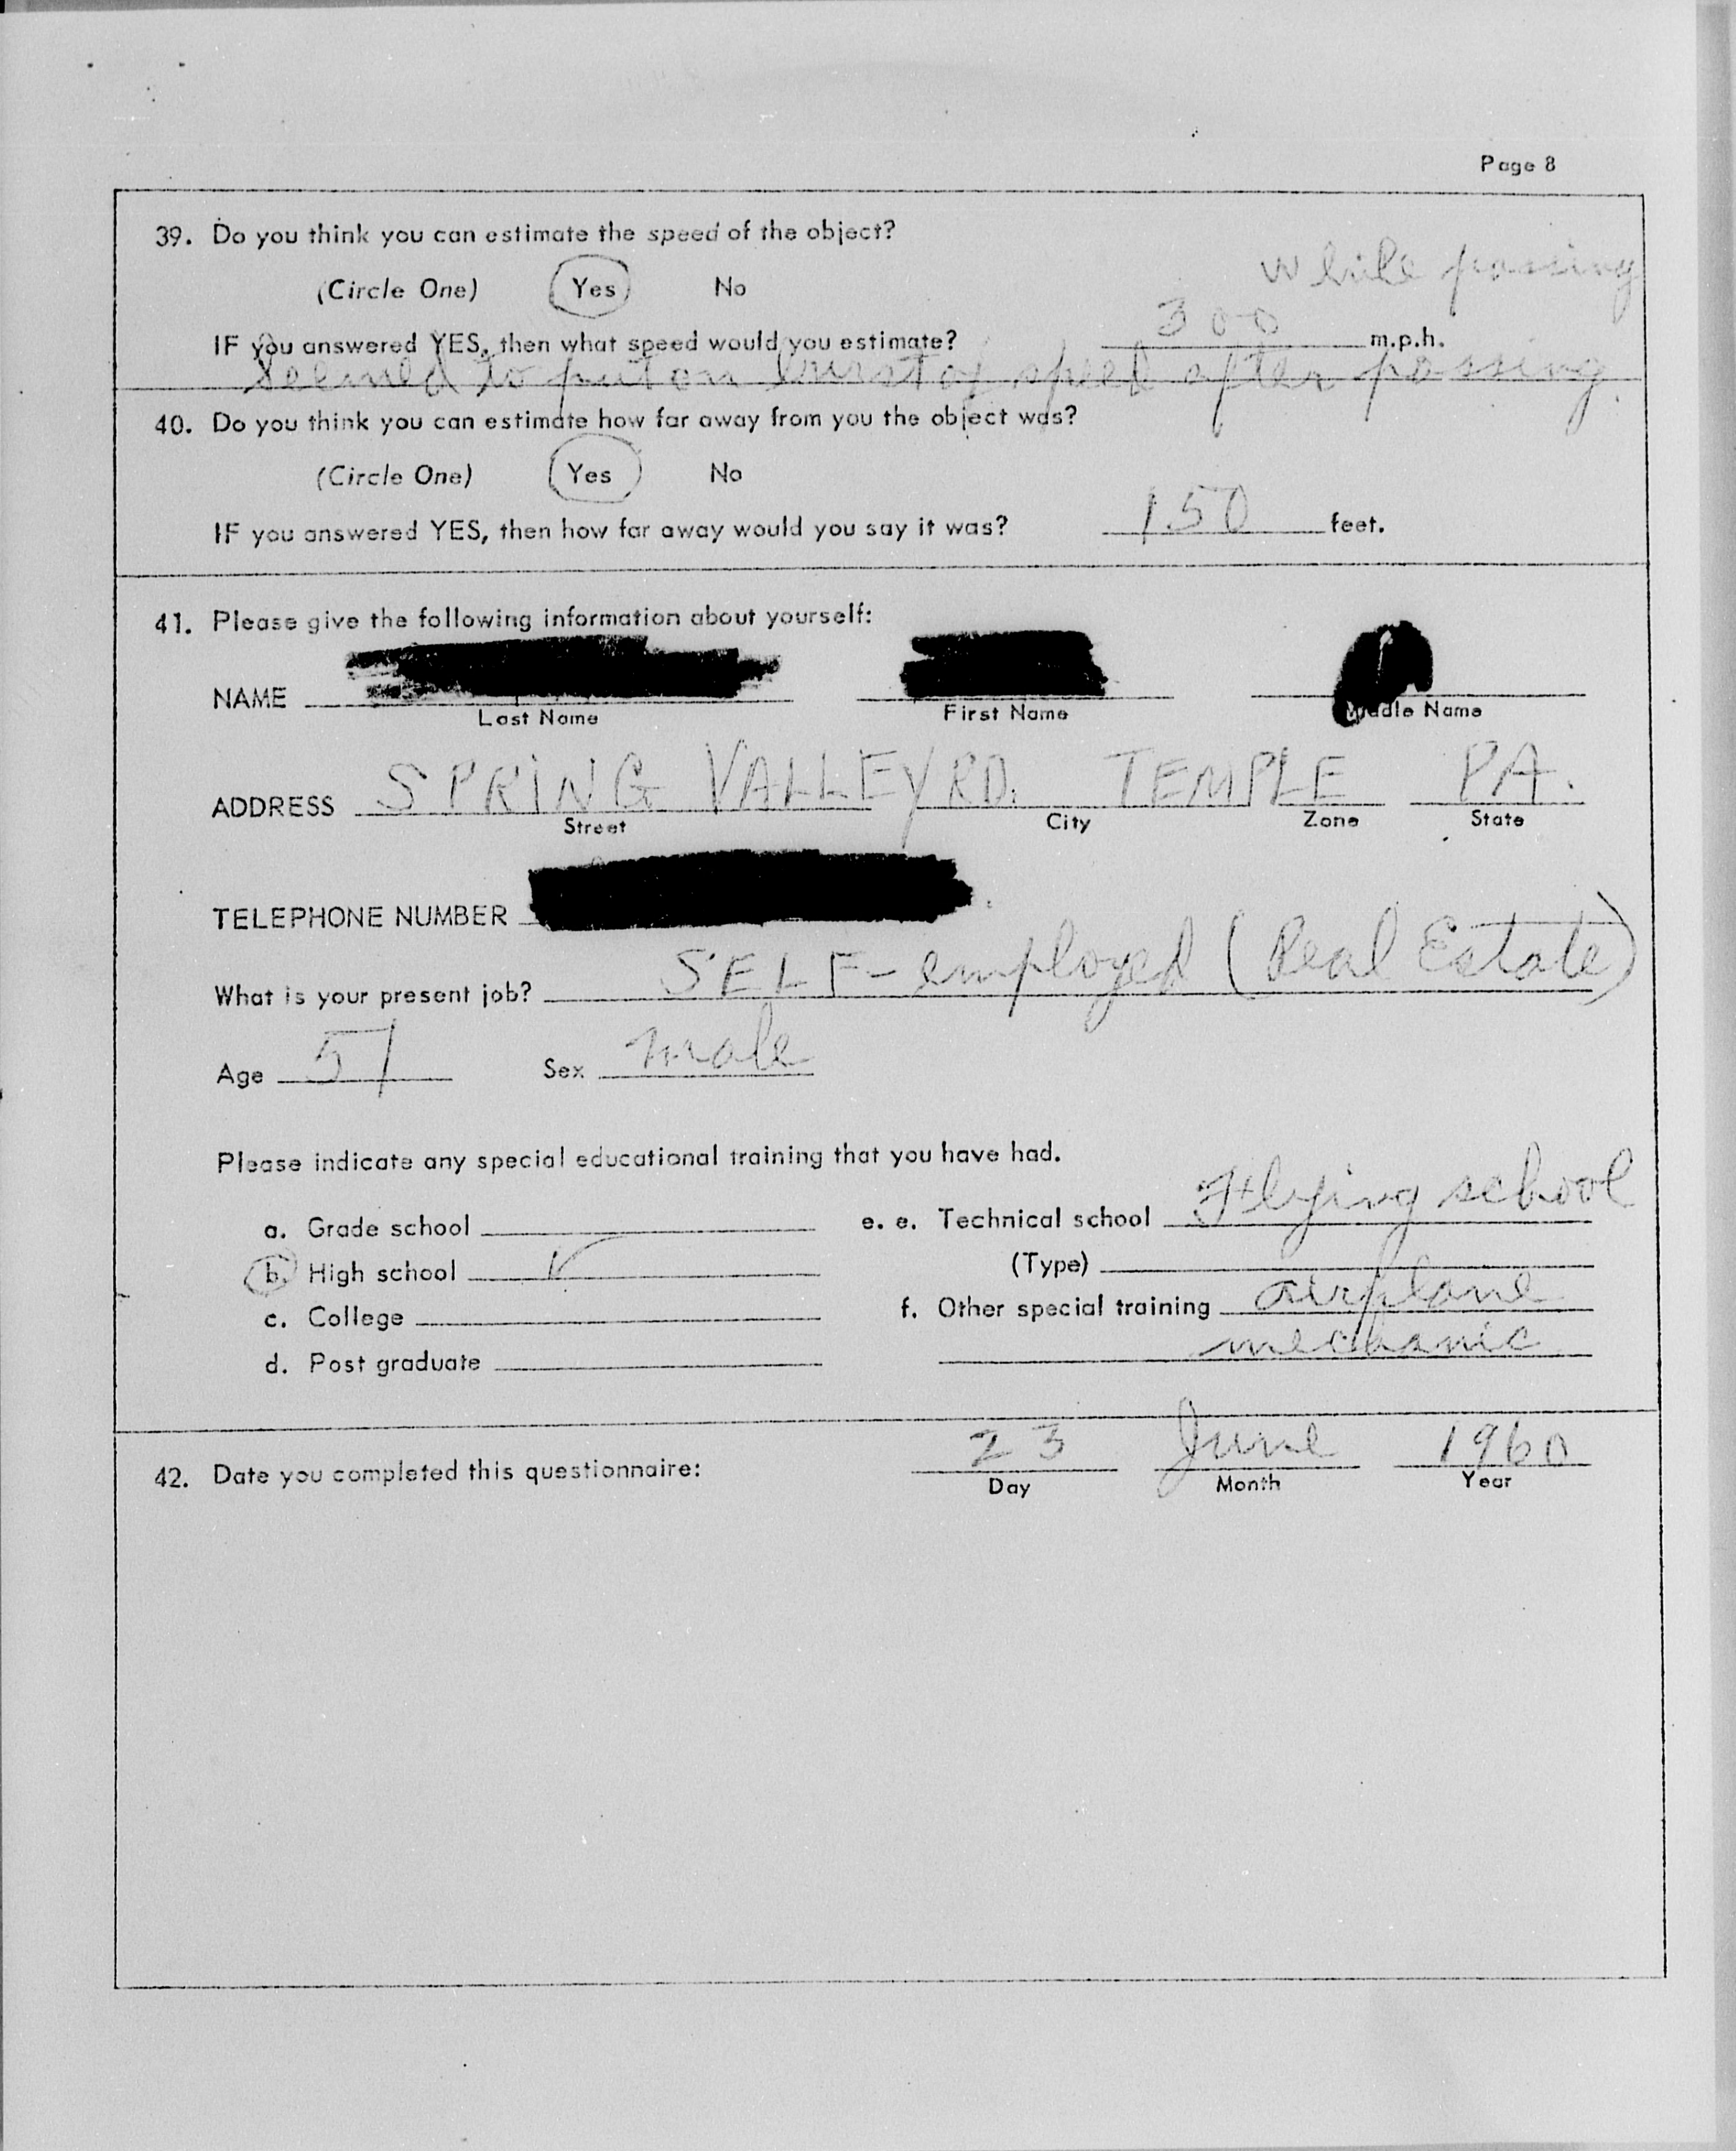 Page 8
39. Do you think you can estimate the speed of the object?
while passing
(Circle One) Yes No
IF you answered YES, then what speed would you estimate? 300 m.p.h.
Seemed to put on burst of speed after passing.
40. Do you think you can estimate how far away from you the object was?
(Circle One) Yes No
IF you answered YES, then how far away would you say it was? 150 feet.
41. Please give the following information about yourself:
NAME
Last Name First Name Middle Name
ADDRESS SPRING VALLEY RD. TEMPLE PA.
Street City Zone State
TELEPHONE NUMBER
What is your present job? SELF-employed (Real Estate)
Age 51 Sex male
Please indicate any special educational training that you have had.
a. Grade school e. e. Technical school Flying school
b. High school ✓ (Type)
c. College f. Other special training airplane
d. Post graduate mechanic
42. Date you completed this questionnaire: 23 June 1960
Day Month Year